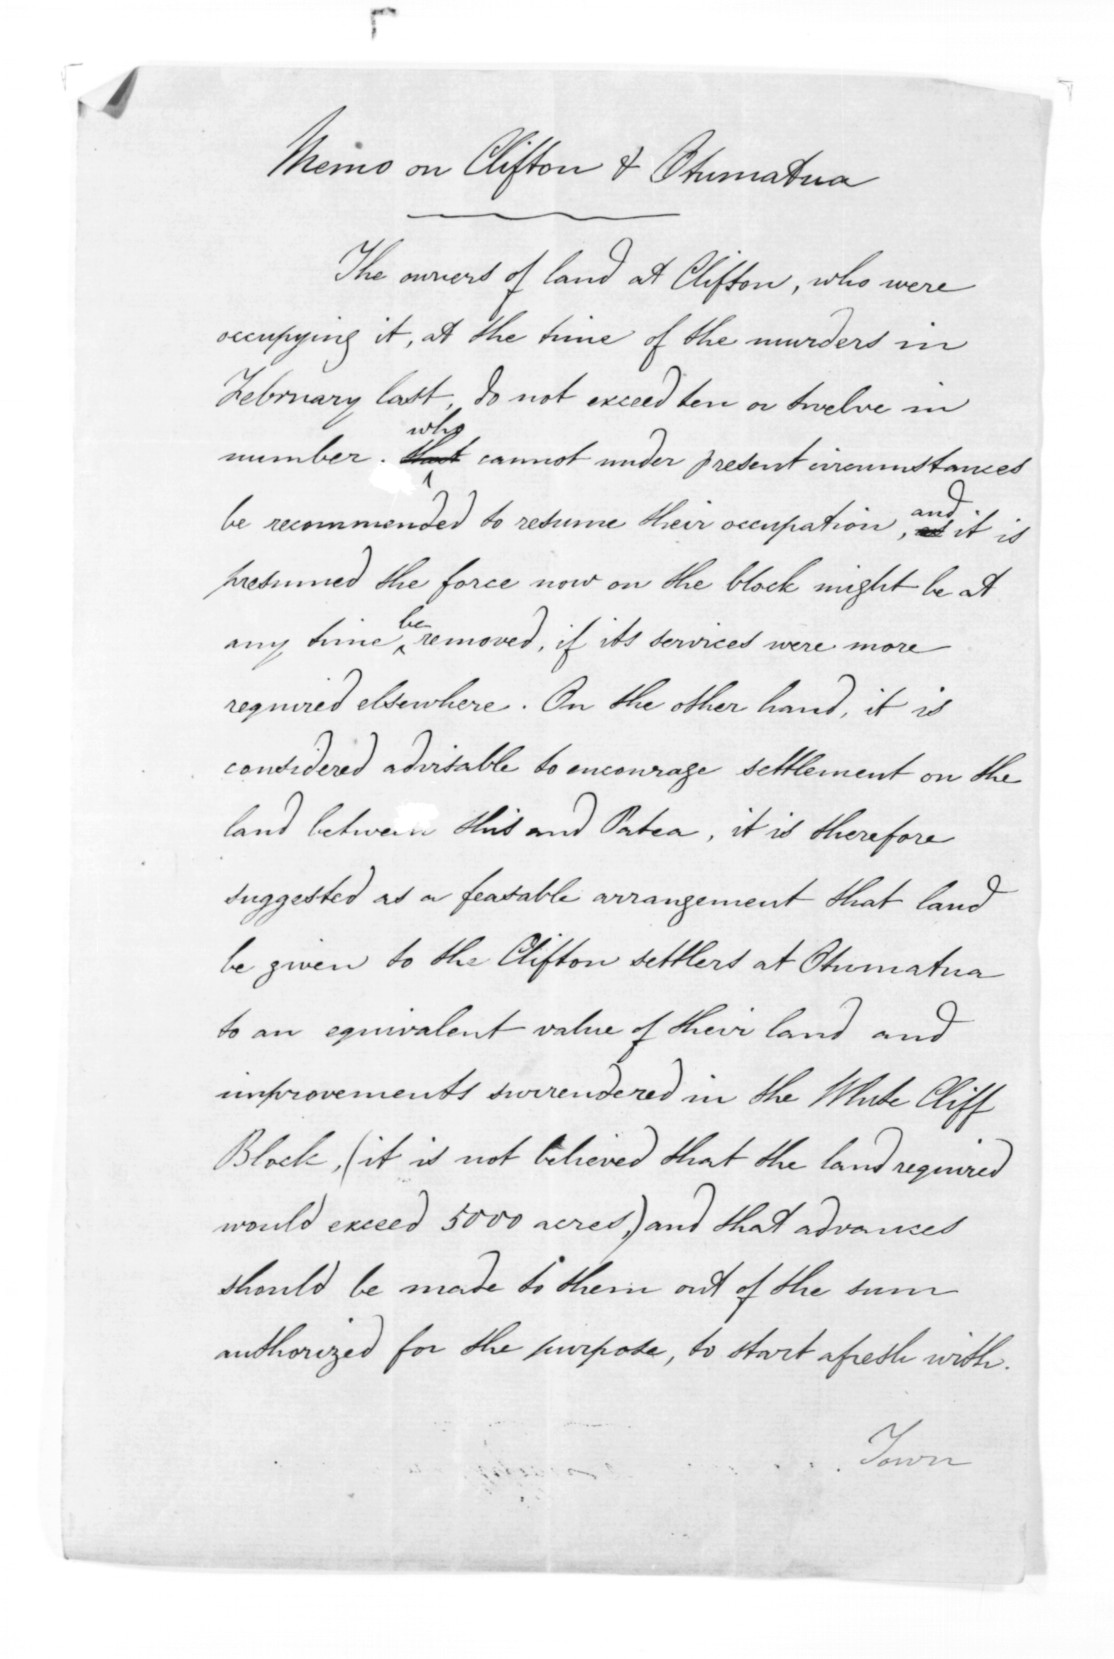 Memo on Clifton & Otumatua
The owners of land at Clifton, who were
occupying it, at the time of the murders in
February last, do not exceed ten or twelve in
number. that who cannot under present circumstances
be recommended to resume their occupation, as and it is
presumed the force now on the block might be at
any time be removed, if its services were more
required elsewhere. On the other hand, it is
considered advisable to encourage settlement on the
land between this and Patea, it is therefore
suggested as a feasable arrangement that land
be given to the Clifton settlers at Otumatua
to an equivalent value of their land and
improvements surrendered in the White Cliff
Block, (it is not believed that the land required
would exceed 5000 acres,) and that advances
should be made to them out of the sum
authorized for the purpose, to start afresh with.
Town